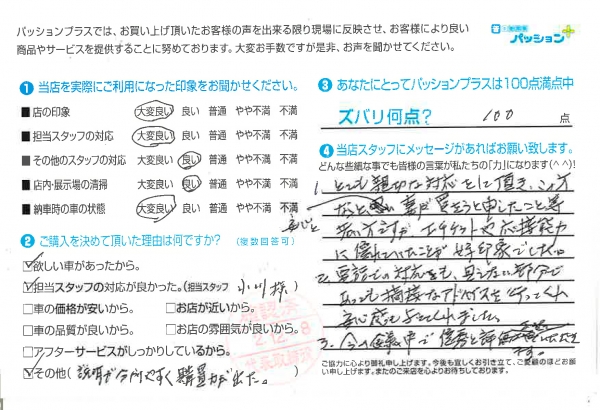 パッションプラスでは、お買い上げ頂いたお客様の声を出来る限り現場に反映させ、お客様により良い
商品やサービスを提供することに努めております。大変お手数ですが是非、お声を聞かせてください。
パッション
❶ 当店を実際にご利用になった印象をお聞かせください。
■ 店の印象 大変良い 良い 普通 やや不満 不満
■ 担当スタッフの対応 大変良い 良い 普通 やや不満 不満
■ その他のスタッフの対応 大変良い 良い 普通 やや不満 不満
■ 店内・展示場の清掃 大変良い 良い 普通 やや不満 不満
■ 納車時の車の状態 大変良い 良い 普通 やや不満 不満
❷ ご購入を決めて頂いた理由は何ですか? (複数回答可)
☑欲しい車があったから。
☑担当スタッフの対応が良かった。(担当スタッフ 小川様)
□車の価格が安いから。 □お店が近いから。
□車の品質が良いから。 □お店の雰囲気が良いから。
□アフターサービスがしっかりしているから。
☑その他(説明が分かりやすく購買力が出た。)
❸ あなたにとってパッションプラスは100点満点中
ズバリ何点? 100 点
❹ 当店スタッフにメッセージがあればお願い致します。
どんな些細な事でも皆様の言葉が私たちの「力」になります(^^)!
1. とても親切な対応をして頂き、この方
なら 妻が買おうと申したこと
若い方ですが エチケットや 応接能力
に優れていたことが 好印象でした。
2. 電話での対応も、見えない部分で
あっても 適切なアドバイスを行ってくれ
安心 ました。
3. 今の 業中で 優秀と評価
ご協力に心より御礼申し上げます。今後も宜しくお引き立て、ご愛顧のほどお願
い申し上げます。またのご来店を心よりお待ちしております。